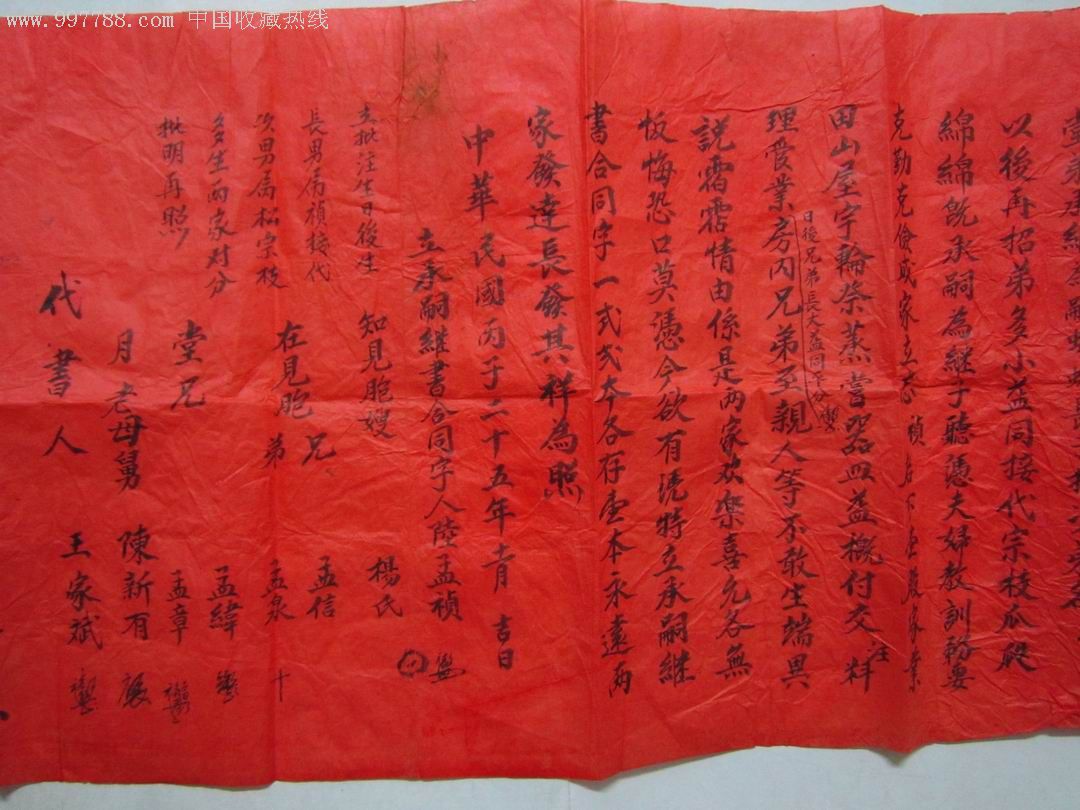 www.997788.com 中国收藏热线
以後再招弟多小益同接代宗枝瓜瓞
綿綿既承嗣為继子聽憑夫婦教訓務要
克勤克儉成家立志禎名下
田山屋宇輪祭蒸嘗器皿益概付交
理管業房内兄弟至親人等不敢生端異
日後兄弟長大益同 分
說霑霑情由係是两家欢樂喜允各無
恢悔恐口莫憑今欲有凭特立承嗣継
書合同字一式弐本各存壹本永遠两
家發達長發其祥為照
中華民國丙子二十五年 月吉日
立承嗣継書合同字人陸孟禎
立批注生日後生
長男属禎接代
次男属松宗枝
多生两家对分
批明再照
知見胞嫂 楊氏
在見胞兄 孟信
弟 孟泉 十
堂兄 孟緯
孟章
月老母舅 陳新有
代書人 王家斌